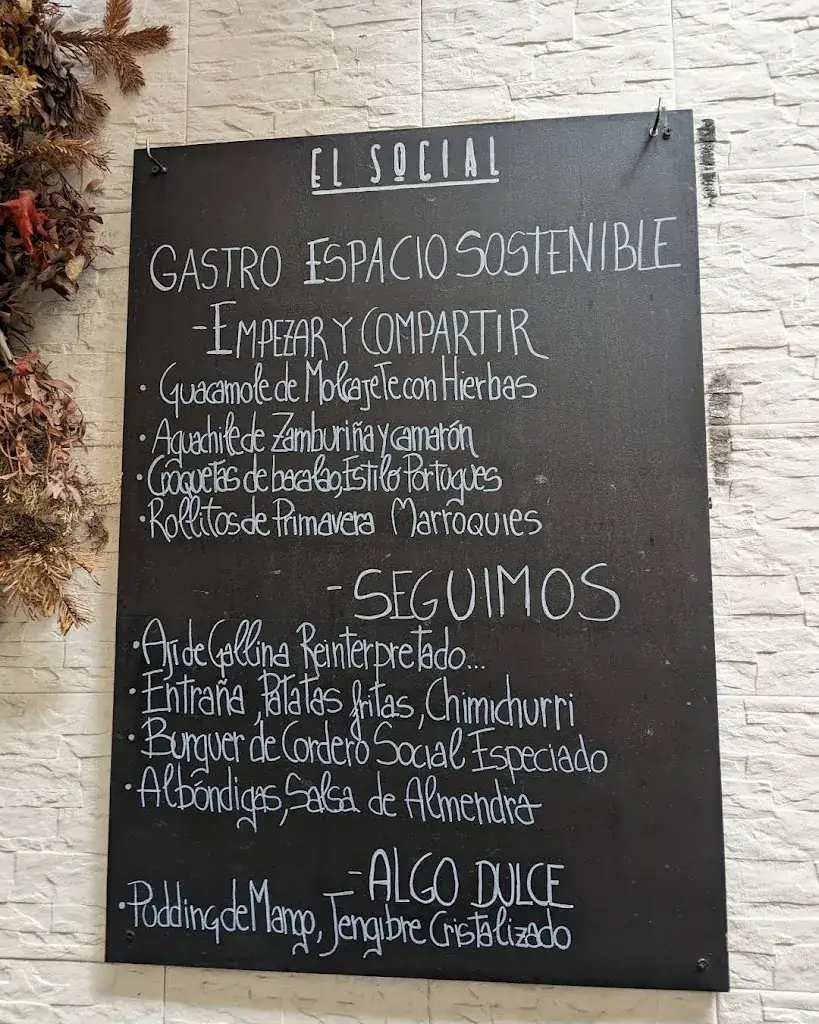 EL SOCIAL
GASTRO ESPACIO SOSTENIBLE
- EMPEZAR Y COMPARTIR
· Guacamole de Molcajete con Hierbas
· Aguachile de Zamburiña y camarón
· Croquetas de bacalao, Estilo Portogues
· Rollitos de Primavera Marroquies
- SEGUIMOS
· Aji de Gallina Reinterpretado...
· Entraña, Patatas fritas, Chimichurri
· Burguer de Cordero Social Especiado
· Albóndigas, Salsa de Almendra
- ALGO DULCE
· Pudding de Mango, Jengibre Cristalizado